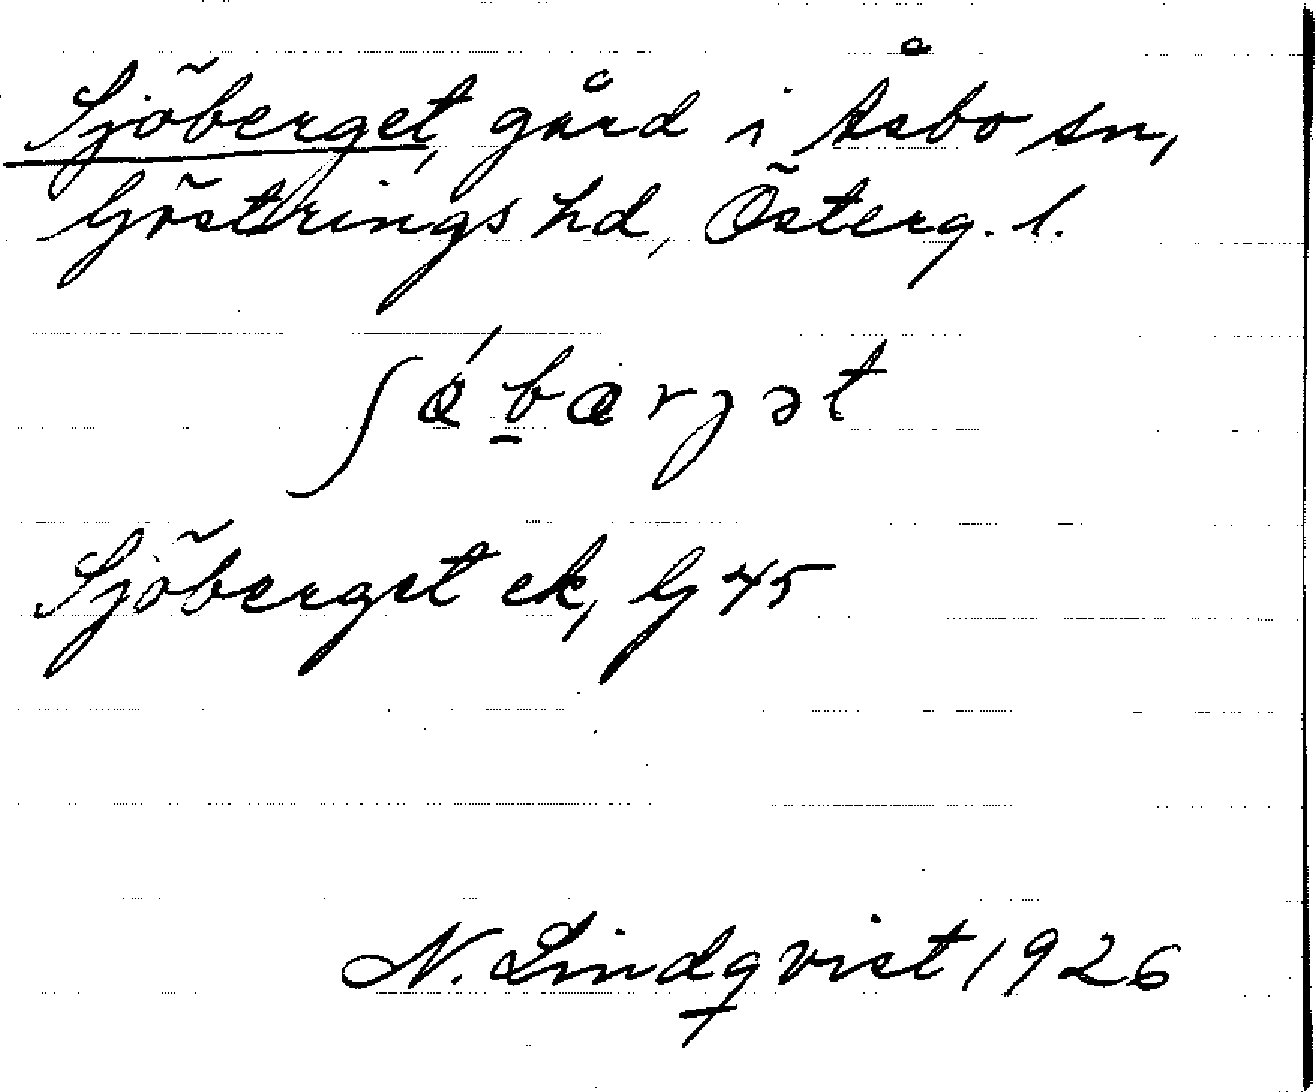 Sjöberget, gård i Åsbo sn,
Göstrings hd, Österg. l.
ʃǿb̠ærjət
Sjöberget ek, G 45
N. Lindqvist 1926